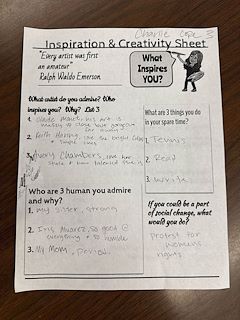 Charlie Cope 3
Inspiration & Creativity Sheet
"Every artist was first
an amateur"
Ralph Waldo Emerson
What
Inspires
YOU?
What artist do you admire? Who
inspires you? Why? List 3
1. Claude Monet, his art is
messy up close but gorgeous
far away
2. Keith Haring, use bright colors
+ simple
3. Avery Chambers, love her
style + how talented she is
Who are 3 human you admire
and why?
1. my sister, strong
2. Iris Alvarez, so good @
everything + so humble
3. My Mom,
What are 3 things you do
in your spare time?
1. Tennis
2. Read
3. write
If you could be a part
of social change, what
would you do?
Protest for
womens
rights